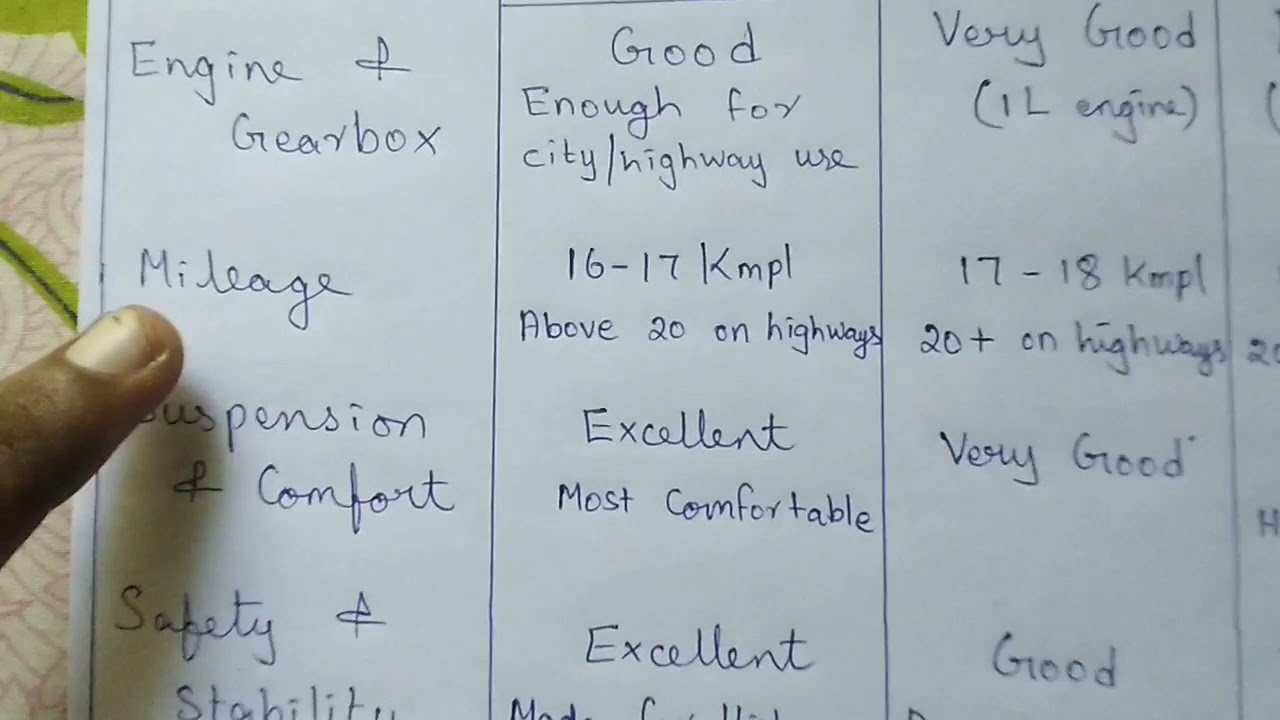 Engine &
Gearbox
Good
Enough for
city/highway use
Very Good
(1L engine)
(
Mileage
16-17 Kmpl
Above 20 on highways
17 - 18 Kmpl
20+ on highways
20
Suspension
& Comfort
Excellent
Most Comfortable
Very Good
H
Safety &
Stability
Excellent
Good